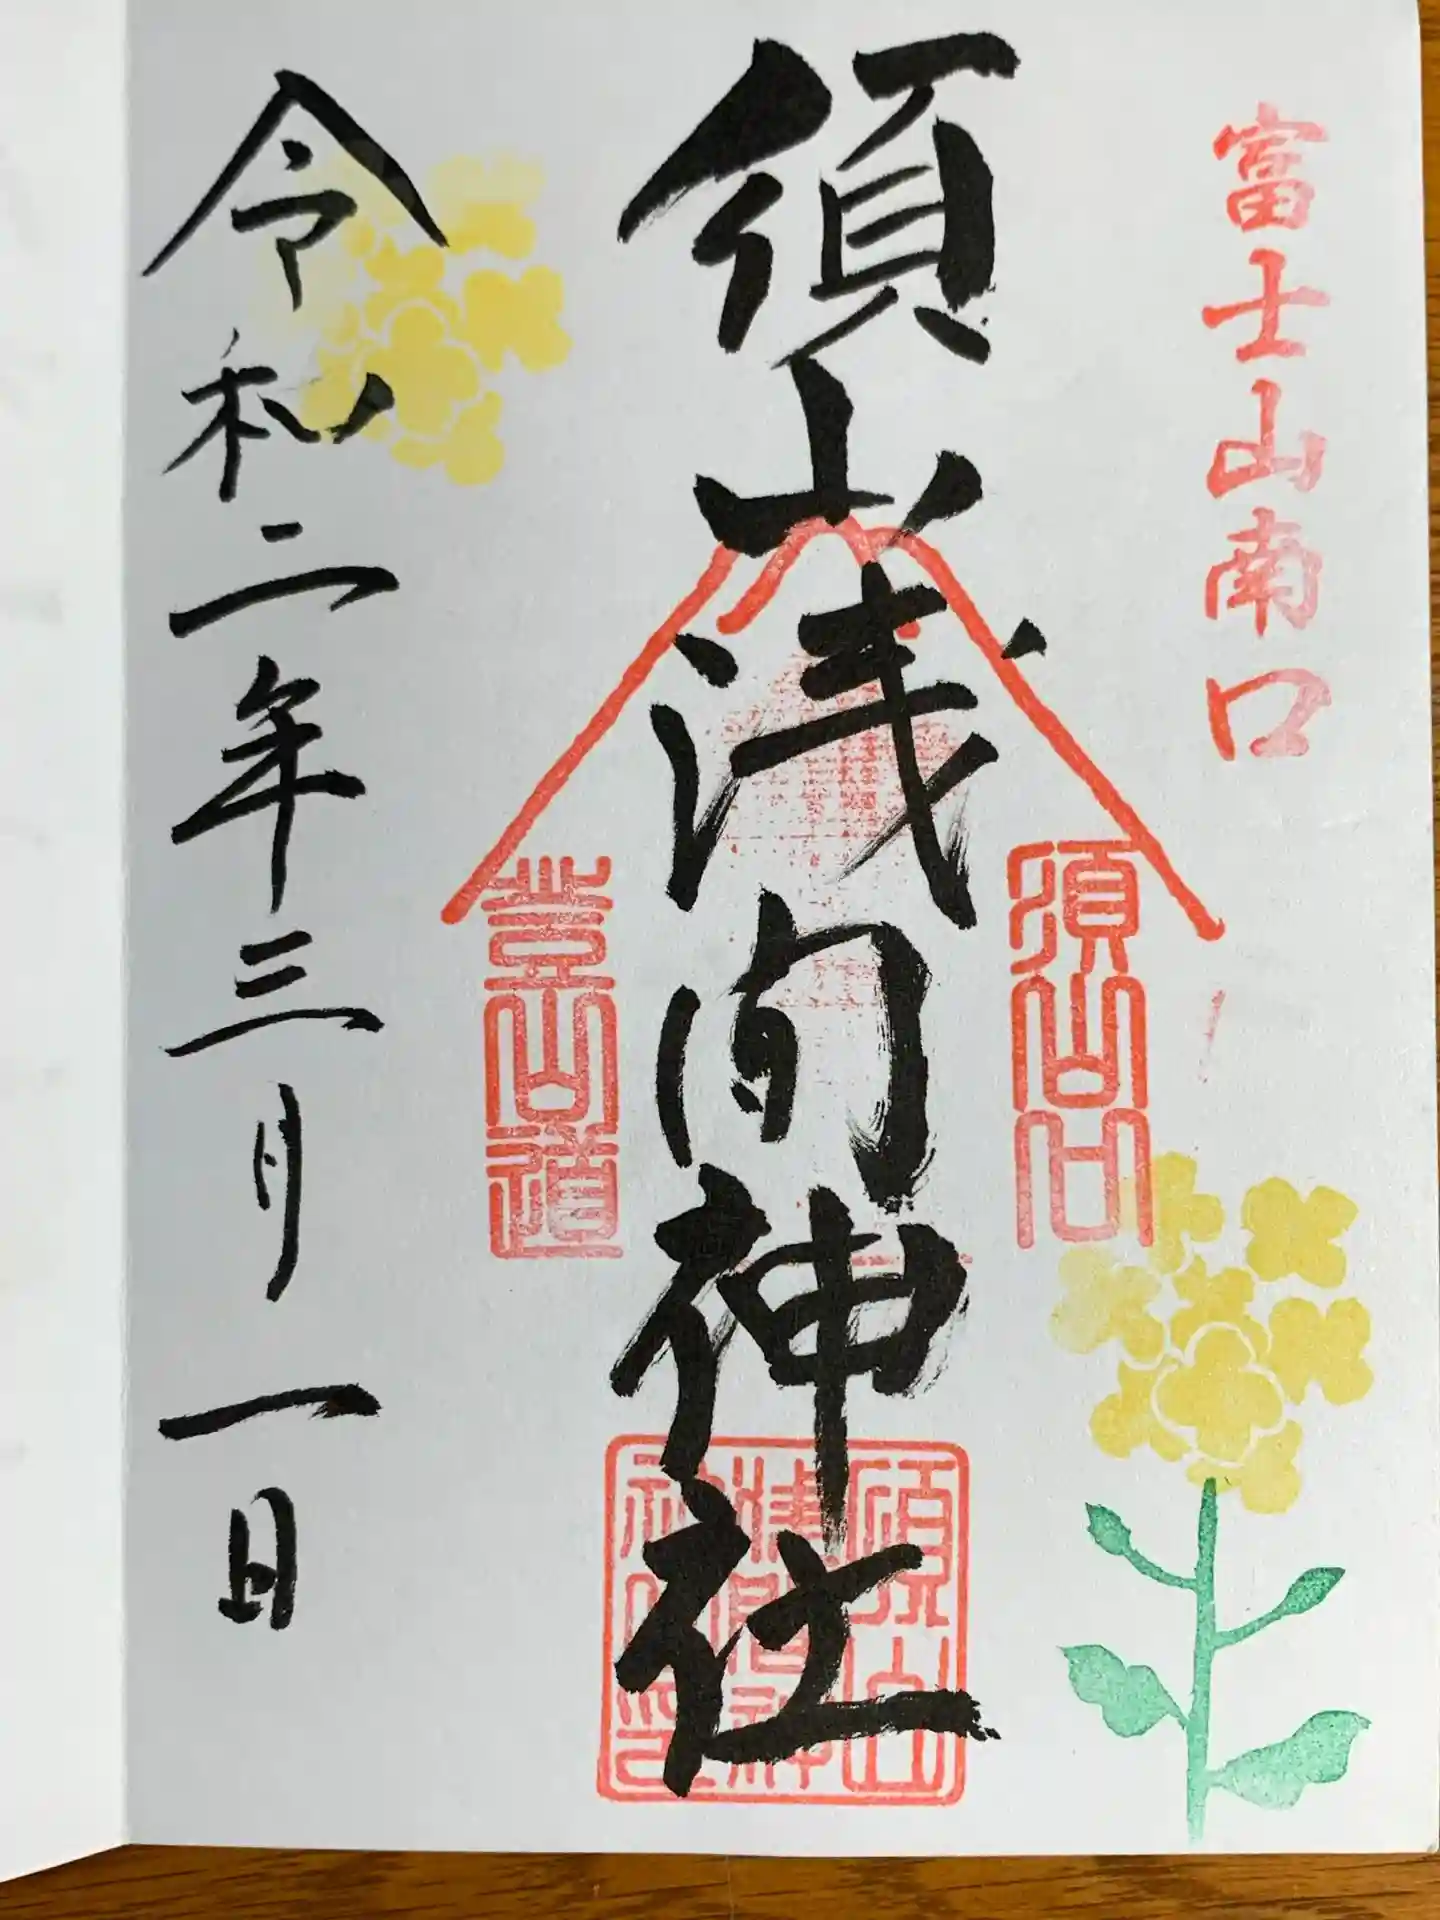 富士山南口
須山口
須山浅間神社
登山道
令和二年三月一日